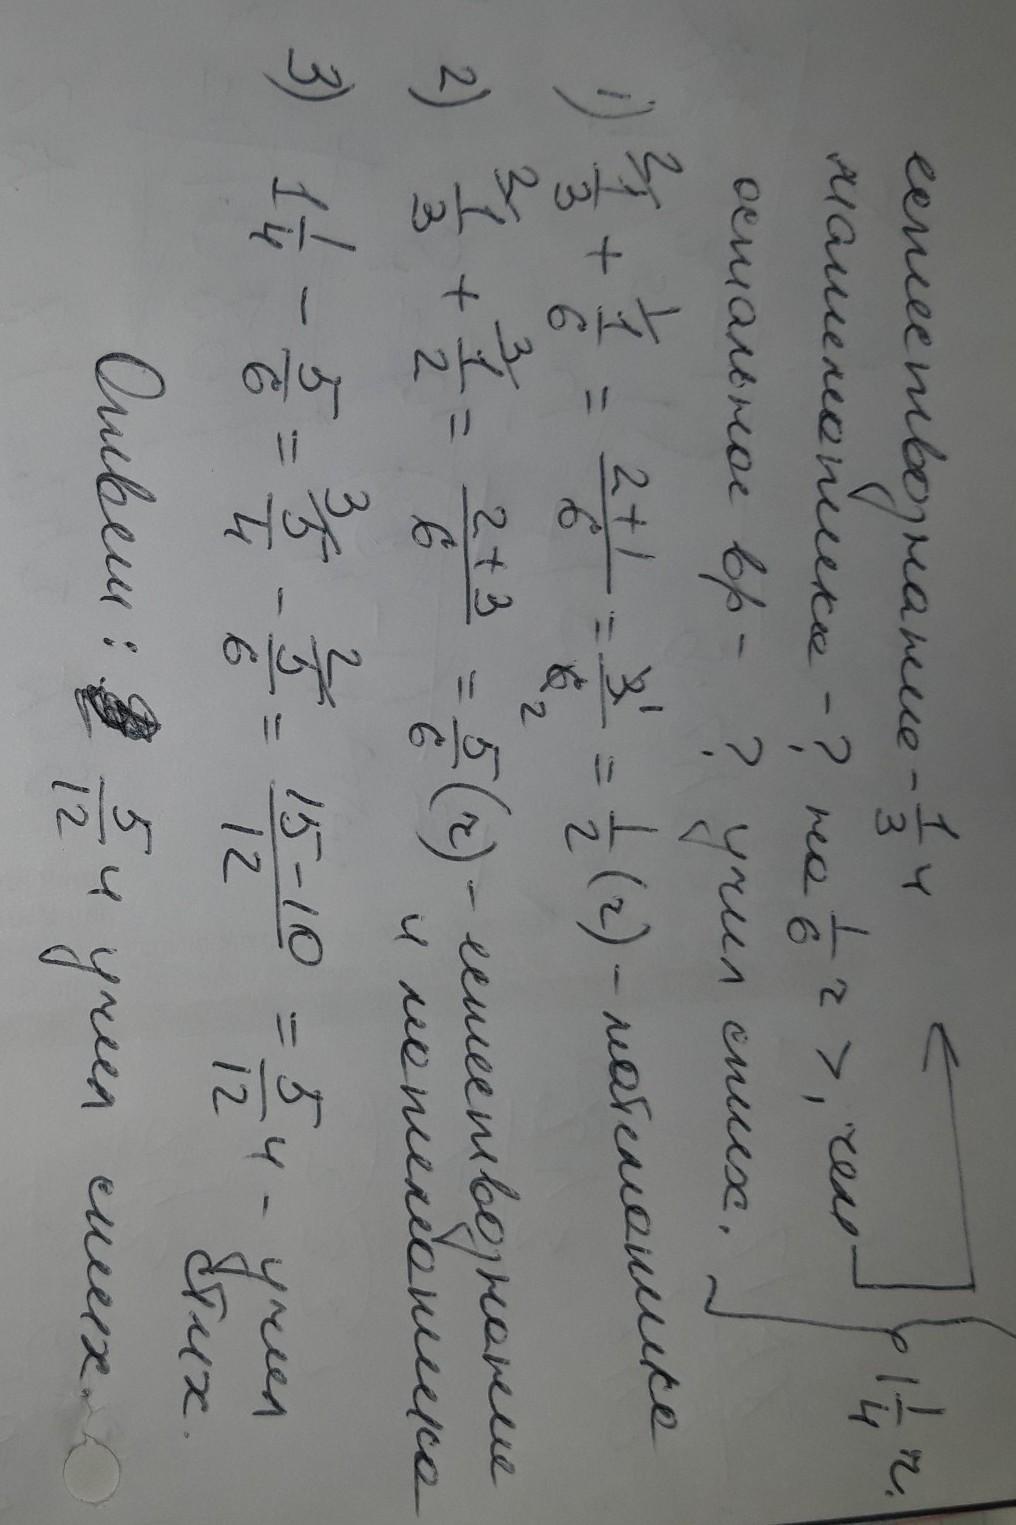 естествознание - 1/3 ч
математика - ? на 1/6 ч >, чем
остальное вр - ? учил стих.
} 1 1/4 ч.
1) 1/3 + 1/6 = (2+1)/6 = 3/6 = 1/2 (ч) - математика
2) 1/3 + 1/2 = (2+3)/6 = 5/6 (ч) - естествознание
и математика
3) 1 1/4 - 5/6 = 5/4 - 5/6 = (15-10)/12 = 5/12 ч - учил
стих.
Ответ: 5/12 ч учил стих.